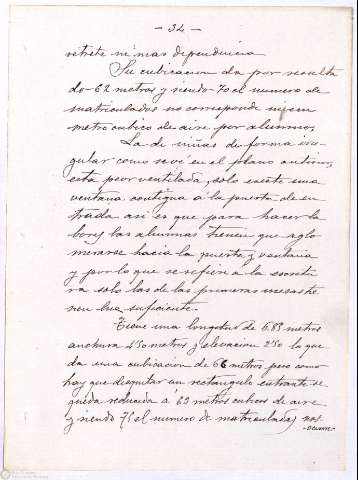 - 34 -
retrete ni mas dependencia
Su cubicacion da por resulta
do 62 metros y siendo 70 el numero de
matriculados no corresponde ni un
metro cubico de aire por alumno.
La de niñas de forma irre
gular como se vé en el plano
esta peor ventilada, solo existe una
ventana contigua á la puerta de en
trada asi es que para hacer la
bores las alumnas tienen que aglo
merarse hacia la puerta y ventana
y por lo que se refiere a la escritu
ra solo las de las primeras mesas tie
nen luz suficiente.
Tiene una longitud de 6.83 metros
anchura 4'50 metros y elevacion 2'50 lo que
da una cubicacion de 66 metros pero como
hay que desquitar un rectangulo entrante se
queda reducida á 62 metros cubicos de aire
y siendo 75 el numero de matriculadas